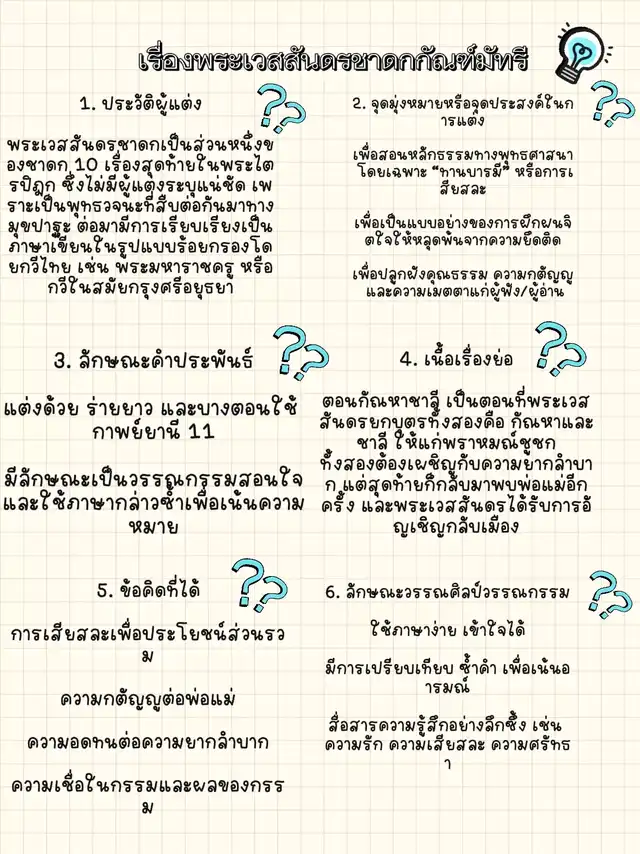 เรื่องพระเวสสันดรชาดกกัณฑ์มัทรี
1. ประวัติผู้แต่ง
พระเวสสันดรชาดกเป็นส่วนหนึ่งข
องชาดก 10 เรื่องสุดท้ายในพระไต
รปิฎก ซึ่งไม่มีผู้แต่งระบุแน่ชัด เพ
ราะเป็นพุทธวจนะที่สืบต่อกันมาทาง
มุขปาฐะ ต่อมามีการเรียบเรียงเป็น
ภาษาเขียนในรูปแบบร้อยกรองโด
ยกวีไทย เช่น พระมหาราชครู หรือ
กวีในสมัยกรุงศรีอยุธยา
2. จุดมุ่งหมายหรือจุดประสงค์ในก
ารแต่ง
เพื่อสอนหลักธรรมทางพุทธศาสนา
โดยเฉพาะ “ทานบารมี” หรือการเ
สียสละ
เพื่อเป็นแบบอย่างของการฝึกฝนจิ
ตใจให้หลุดพ้นจากความยึดติด
เพื่อปลูกฝังคุณธรรม ความกตัญญู
และความเมตตาแก่ผู้ฟัง/ผู้อ่าน
3. ลักษณะคำประพันธ์
แต่งด้วย ร่ายยาว และบางตอนใช้
กาพย์ยานี 11
มีลักษณะเป็นวรรณกรรมสอนใจ
และใช้ภาษากล่าวซ้ำเพื่อเน้นความ
หมาย
4. เนื้อเรื่องย่อ
ตอนกัณหาชาลี เป็นตอนที่พระเวส
สันดรยกบุตรทั้งสองคือ กัณหาและ
ชาลี ให้แก่พราหมณ์ชูชก
ทั้งสองต้องเผชิญกับความยากลำบา
ก แต่สุดท้ายก็กลับมาพบพ่อแม่อีก
ครั้ง และพระเวสสันดรได้รับการอั
ญเชิญกลับเมือง
5. ข้อคิดที่ได้
การเสียสละเพื่อประโยชน์ส่วนรว
ม
ความกตัญญูต่อพ่อแม่
ความอดทนต่อความยากลำบาก
ความเชื่อในกรรมและผลของกรร
ม
6. ลักษณะวรรณศิลป์วรรณกรรม
ใช้ภาษาง่าย เข้าใจได้
มีการเปรียบเทียบ ซ้ำคำ เพื่อเน้นอ
ารมณ์
สื่อสารความรู้สึกอย่างลึกซึ้ง เช่น
ความรัก ความเสียสละ ความศรัทธ
า